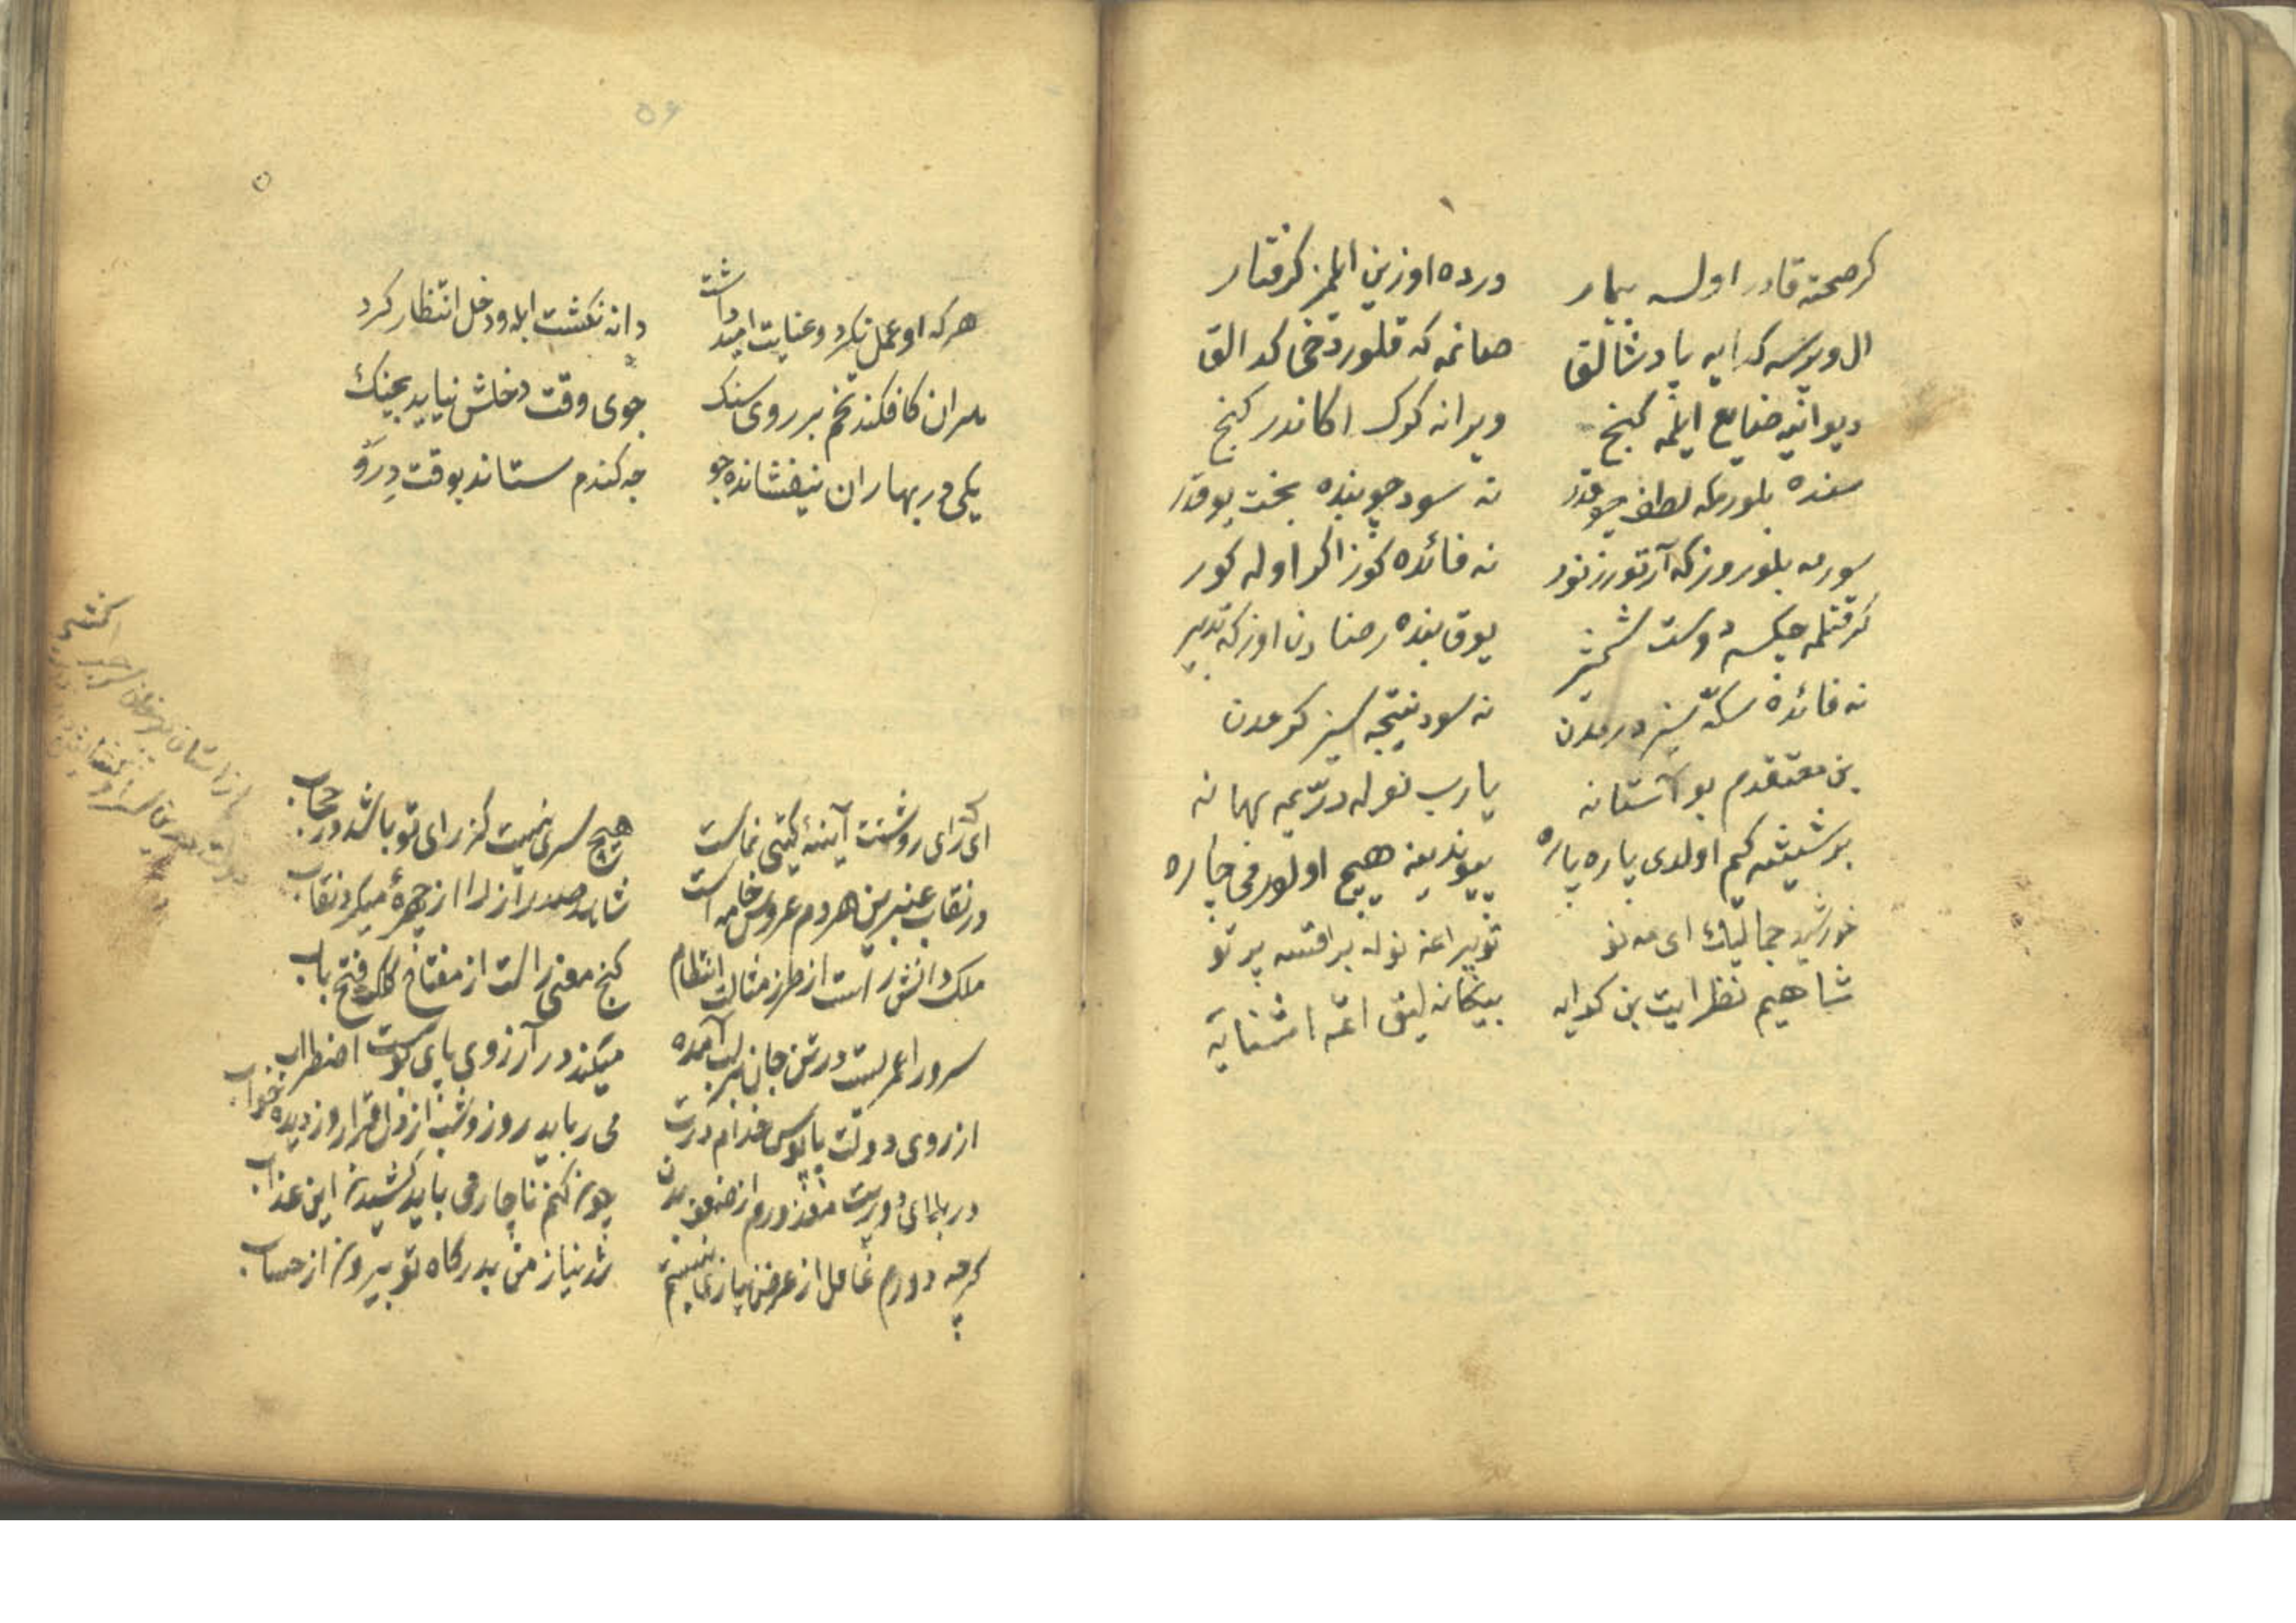 كر صحته قادر اولسه بيمار    درده اوزين ايلمز كرفتار
ال ويرسه كدايه پادشالق    صانمه كه قلور دخى كدالق
ديوانيه ضايع ايلمه كنج    ويرانه كرك اكا ندر كنج
سنده بلورمكه لطف چوقدر    نه سود چو بنده بخت يوقدر
سورمه بلورز كه آرتورر نور    نه فائده كوز اكر اوله كور
كر قتلمه چكسه دوست شمشير    يوق بنده رضادن اوزكه تدبير
نه فائده سكه سز درمدن    نه سود نتيجه سز كرمدن
بن معتقدم بو آستانه    يارب نوله در يمه بهانه
بو شيشه كم اولدى پاره پاره    پيوندينه هيچ اولورمى چاره
خورشيد جمالك اى مه نو    نوله براقسه پرتو
شاهيم نظر ايت بن كدايه    بيكانه ليق اتمه اشنايه
٥٦
هركه او عمل نكرد و عنايت اميد داشت    دانه نكشت ابله و دخل انتظار كرد
كافكند تخم بر روى سنك    جوى وقت دخلش نيايد بچنك
يكى در بهاران نيفشانده جو    چه كندم ستاند بوقت درو
اى كه راى روشنت آيينهٔ كيتى نماست    هيچ سرى نيست كز راى تو باشد در حجاب
در نقاب عنبرين هردم عروس خامه است    شاهد صد راز را از چهرهٔ ميكرد نقاب
ملك دانش راست از طرز مثالت انتظام    كنج معنى راست از مفتاح كلكت فتح باب
سرورا عمريست در تن جان بر لب آمده    ميكند در آرزوى پاى بوست اضطراب
ارزوى دولت پابوس خدام درت    مى ربايد روز و شب از دل قرار و ز ديده خواب
در بلاى دوريت معذورم از ضعف بدن    چون كنم ناچار مى بايد كشيدن اين عذاب
كرچه دورم غافل از عرض نياز نيستم    شد نياز من بدركاه تو بيرون از حساب